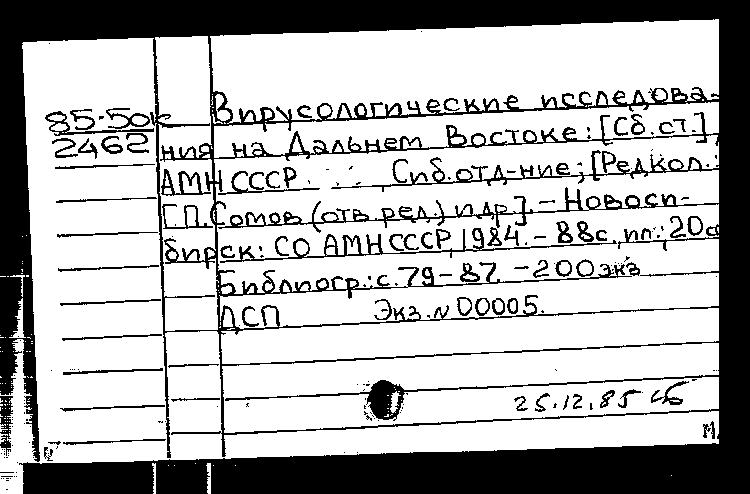 85-5ок Вирусологические исследова-
2462 ния на Дальнем Востоке: [Сб. ст.],
АМН СССР, Сиб. отд-ние; [Редкол.:
Г.П. Сомов (отв. ред.) и др.]. - Новоси-
бирск: СО АМН СССР, 1984. - 88с., ил.; 20с
Библиогр.: с. 79-87. - 200 экз
ДСП Экз. N 00005.
25.12.85
М.